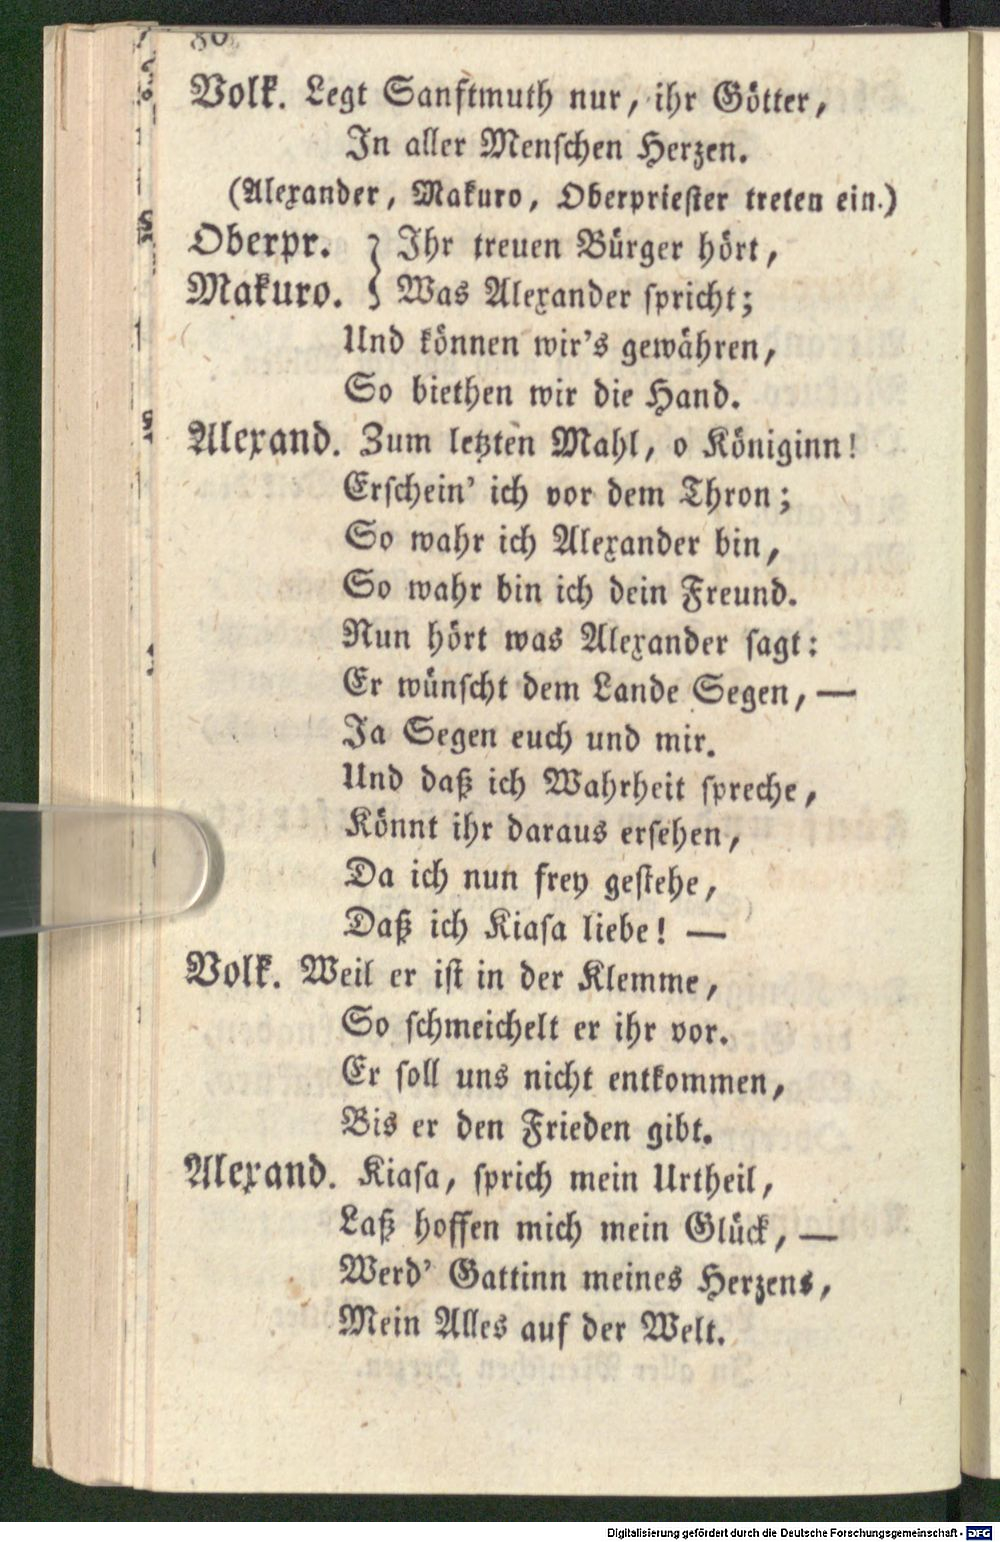 80
Volk. Legt Sanftmuth nur, ihr Götter,
In aller Menschen Herzen.
(Alexander, Makuro, Oberpriester treten ein.)
Oberpr. } Ihr treuen Bürger hört,
Makuro. } Was Alexander spricht;
Und können wir's gewähren,
So biethen wir die Hand.
Alexand. Zum letzten Mahl, o Königinn!
Erschein' ich vor dem Thron;
So wahr ich Alexander bin,
So wahr bin ich dein Freund.
Nun hört was Alexander sagt:
Er wünscht dem Lande Segen, —
Ja Segen euch und mir.
Und daß ich Wahrheit spreche,
Könnt ihr daraus ersehen,
Da ich nun frey gestehe,
Daß ich Kiasa liebe! —
Volk. Weil er ist in der Klemme,
So schmeichelt er ihr vor.
Er soll uns nicht entkommen,
Bis er den Frieden gibt.
Alexand. Kiasa, sprich mein Urtheil,
Laß hoffen mich mein Glück, —
Werd' Gattinn meines Herzens,
Mein Alles auf der Welt.
Digitalisierung gefördert durch die Deutsche Forschungsgemeinschaft - DFG